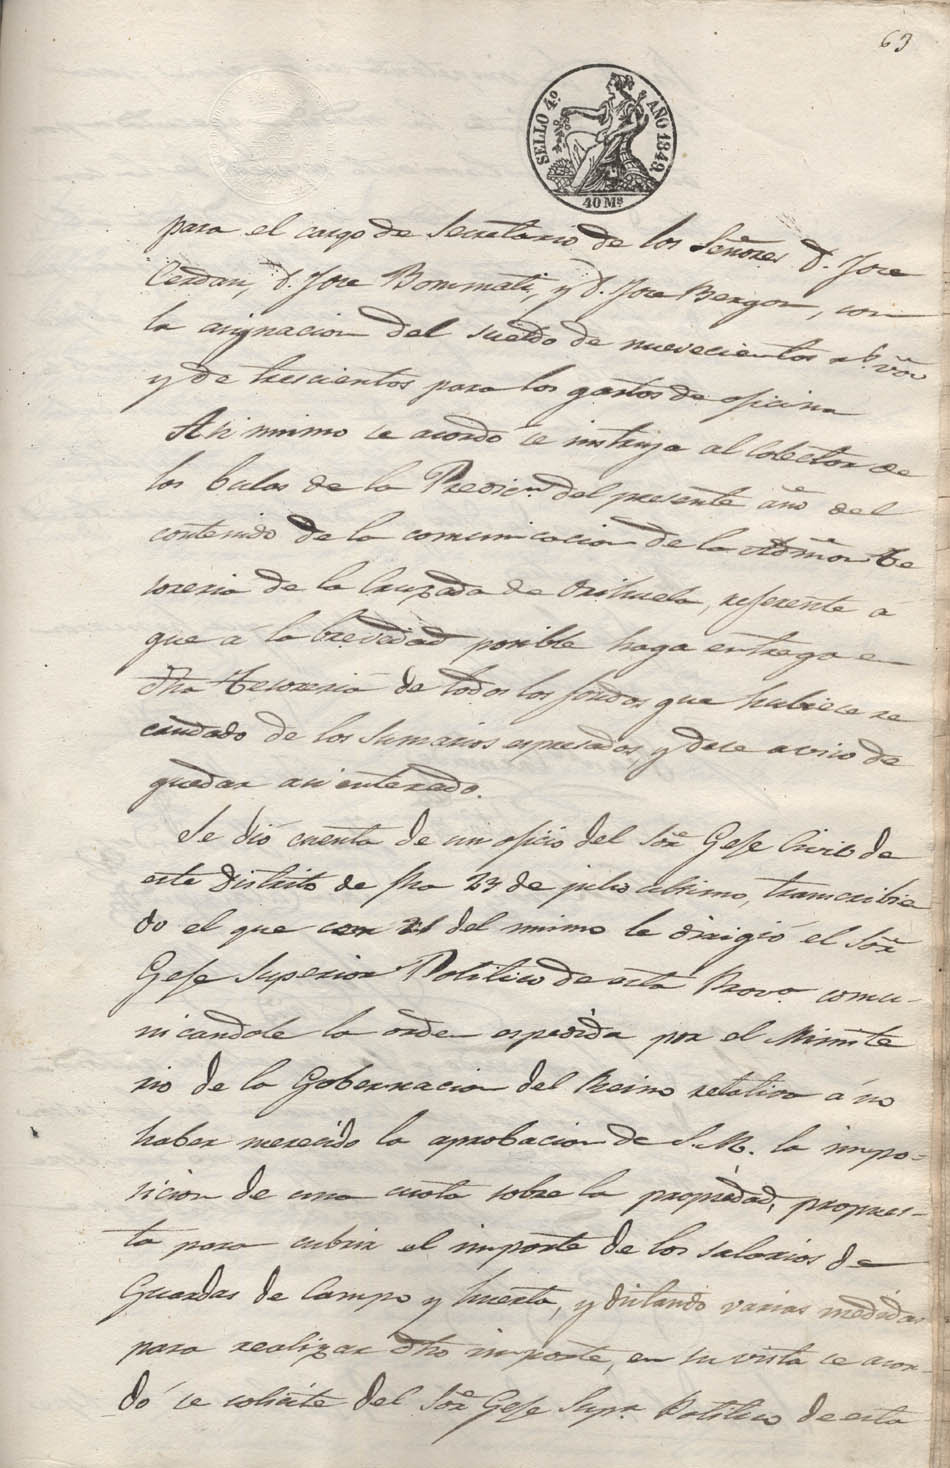 63
SELLO 4º AÑO 1848.
40 Ms
para el cargo de Secretario de los Señores D. Jose
Cerdan, D. Jose Bommati, y D. Jose Bergon, con
la asignacion del sueldo de nuevecientos rs. von
y de trescientos para los gastos de oficina
Asi mismo se acordó se instruya al colector de
las bulas de la Predicn. del presente año del
contenido de la comunicacion de la Admon. te
soreria de la Cruzada de Orihuela, referente á
que á la brevedad posible haga entrega en
dha tesoreria de todos los fondos que hubiese re
caudado de los Sumarios espresados, y dese aviso de
quedar asi enterado.
Se dió cuenta de un oficio del Sor Gefe Civil de
este distrito de fha 23 de julio ultimo, transcribien
do el que con 21 del mismo le dirigió el Sor
Gefe Superior Politico de esta Prova. comu-
nicandole la orden espedida por el Ministe
rio de la Gobernacion del Reino relativa á no
haber merecido la aprobacion de S.M. la impo-
sicion de una cuota sobre la propiedad, propues-
ta para cubrir el importe de los salarios de
Guardas de Campo y huerta, y dictando varias medidas
para realizar dho importe, en su vista se acor-
dó se solicite del Sor Gefe Supr. Politico de esta